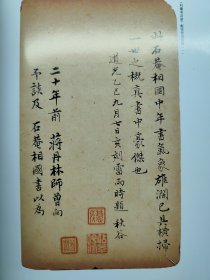 此石菴相國中年書氣象雄闊已具橫掃
一世之概真書中豪傑也
道光乙巳九月七日亥刻雷雨時題 秋谷
二十年前 蔣丹林師曾向
談及 石菴相國書以爲